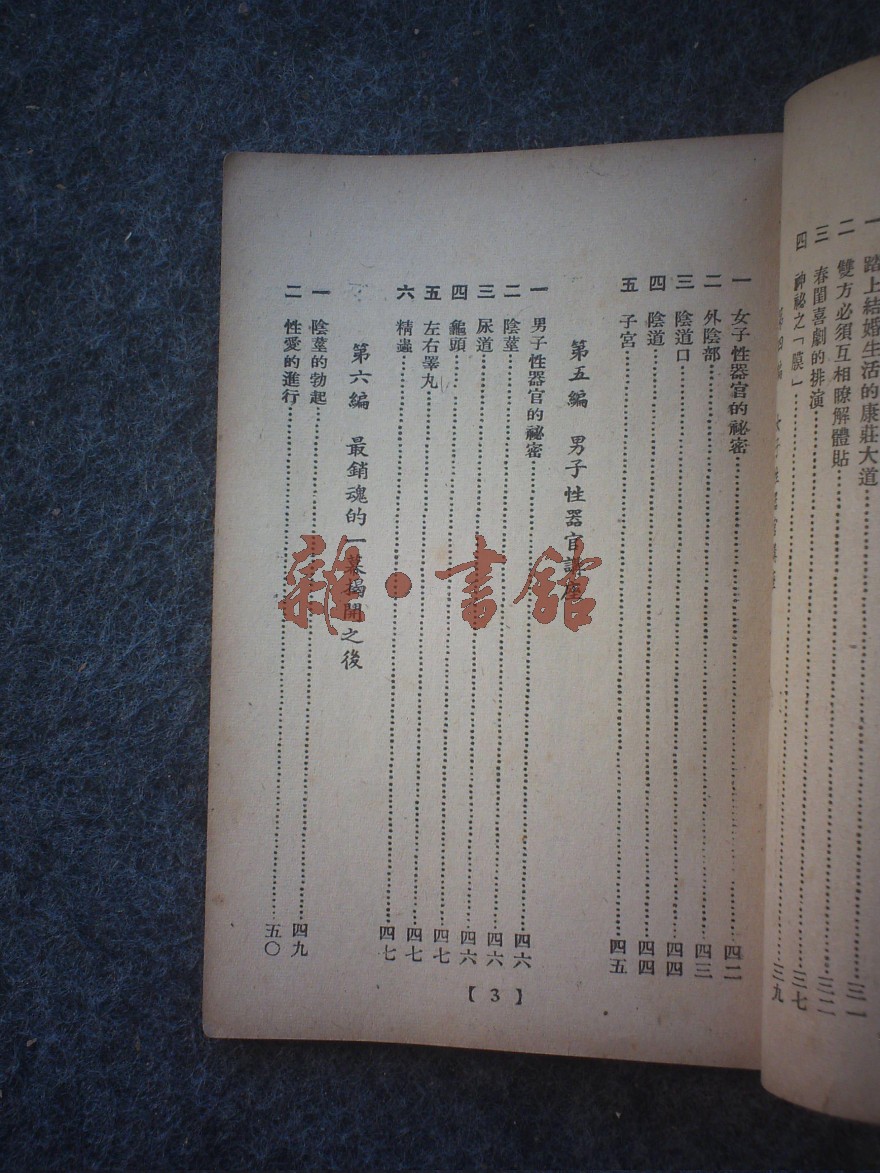 一 踏上結婚生活的康莊大道……三一
二 雙方必須互相瞭解體貼……三二
三 春閨喜劇的排演……三七
四 神祕之「膜」……三九
一 女子性器官的祕密……四二
二 外陰部……四三
三 陰道口……四四
四 陰道……四四
五 子宮……四五
第五編 男子性器官講座
一 男子性器官的祕密……四六
二 陰莖……四六
三 尿道……四六
四 龜頭……四七
五 左右睾丸……四七
六 精蟲……四七
第六編 最銷魂的一幕揭開之後
一 陰莖的勃起……四九
二 性愛的進行……五〇
【3】
雜·書館